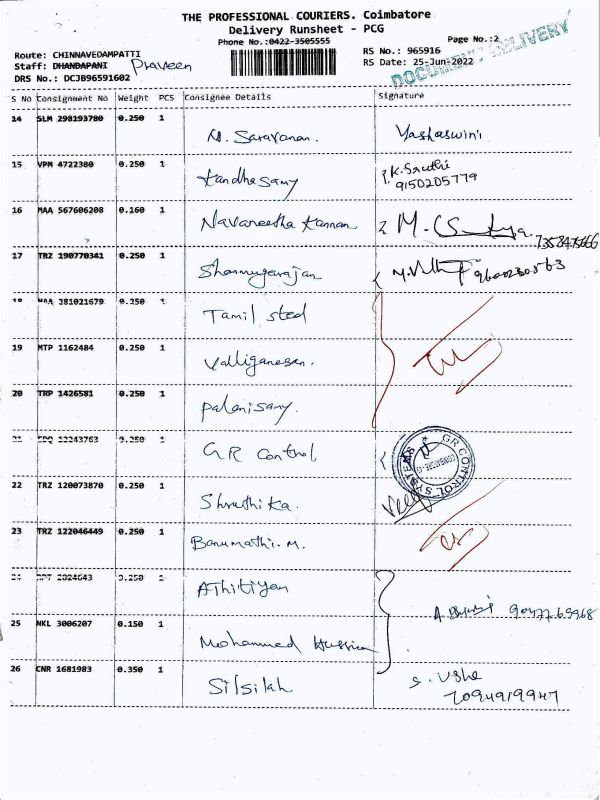 THE PROFESSIONAL COURIERS. Coimbatore
Delivery Runsheet - PCG
Phone No.:0422-3505555
Page No.:2
DOCUMENT DELIVERY
Route: CHINNAVEDAMPATTI
RS No.: 965916
Staff: DHANDAPANI Praveen
RS Date: 25-Jun-2022
DRS No.: DCJB96591602
S No Consignment No Weight PCS Consignee Details Signature
14 SLM 298193780 0.250 1 M. Saravanan. Yashaswini
15 VPM 4722380 0.250 1 Kandhasamy K. Sruthi
9150205779
16 MAA 567606208 0.160 1 Navaneetha Kannan
17 TRZ 190770341 0.250 1 Shanmugarajan
18 MAA 381021679 0.350 1 Tamil steel
19 MTP 1162484 0.250 1 Valliganesan.
20 TRP 1426581 0.250 1 Palanisamy.
21 22243763 0.250 1 GR Control
GR CONTROL SYSTEMS
22 TRZ 120073870 0.250 1 Shruthika.
23 TRZ 122046449 0.250 1 Banumathi. M.
24 2024643 0.250 1 Athitiyan
25 NKL 3006207 0.150 1 Mohammed Hussian
26 CNR 1681983 0.350 1 Silsilah S. Usha
7094919947